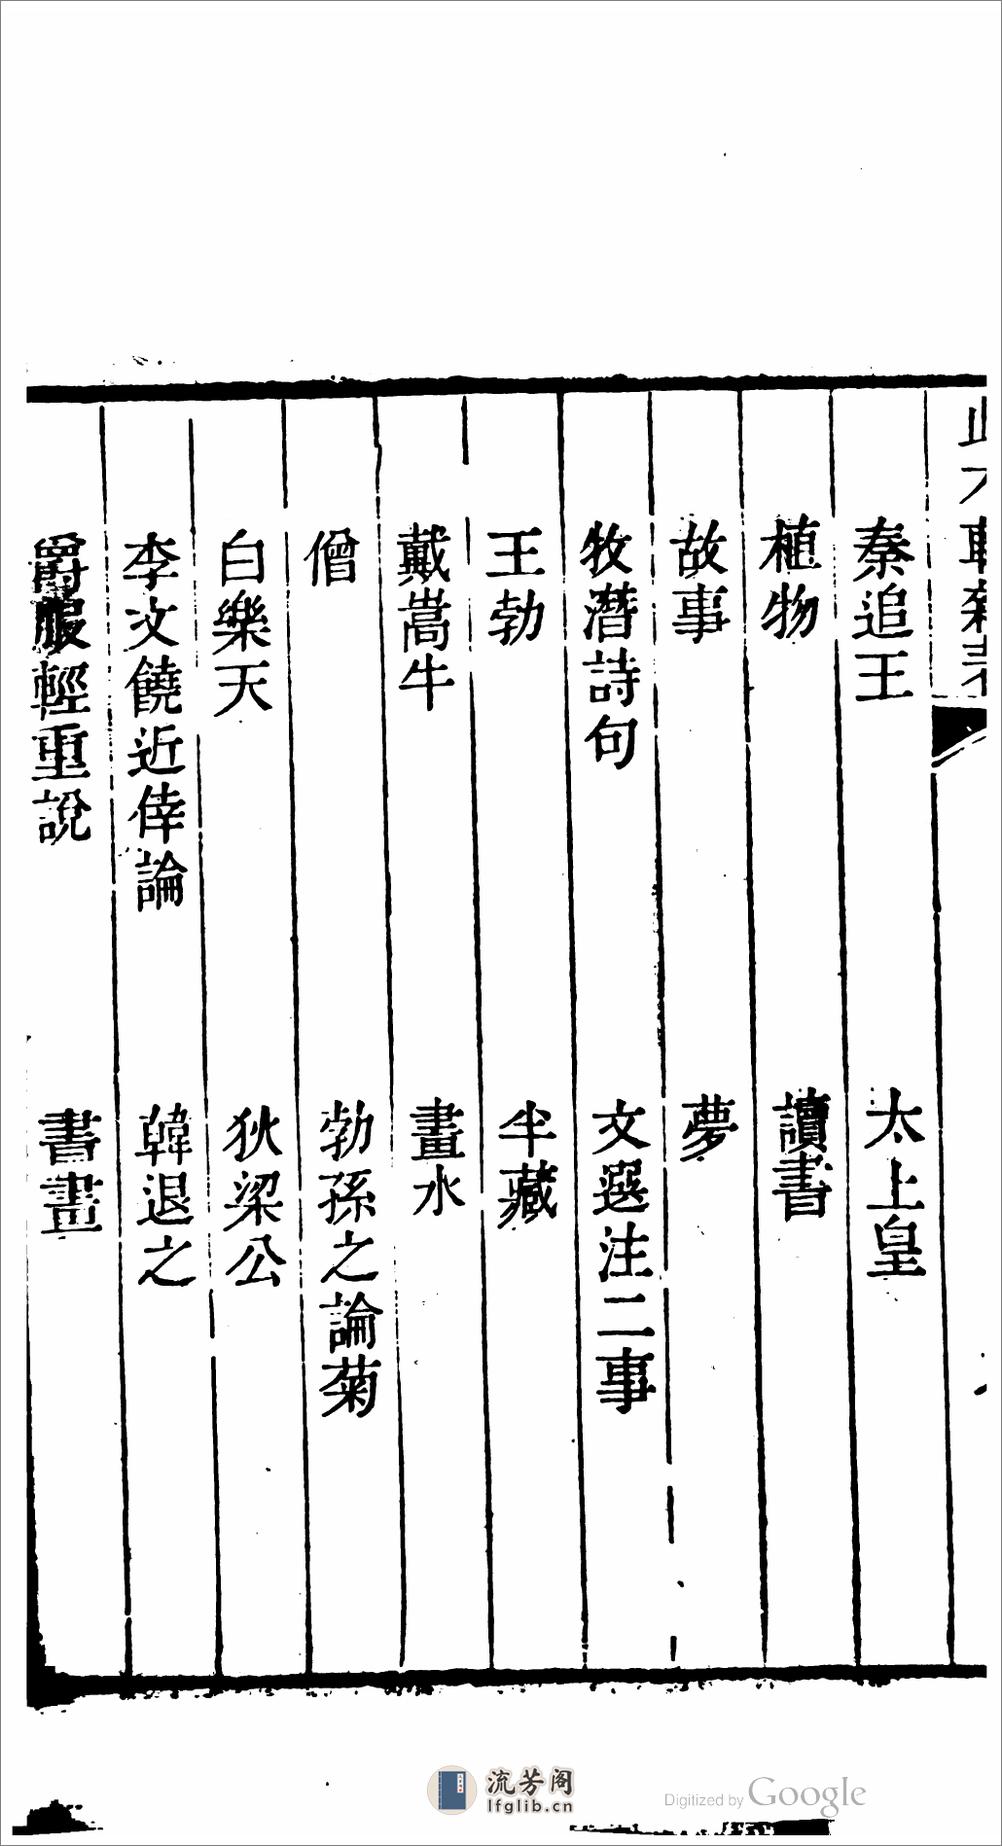 秦追王 太上皇
植物 讀書
故事 夢
牧潛詩句 文選注二事
王勃 半藏
戴嵩牛 畫水
僧 勃孫之論菊
白樂天 狄梁公
李文饒近倖論 韓退之
爵服輕重說 書畫
流芳阁
lfglib.cn
Digitized by Google